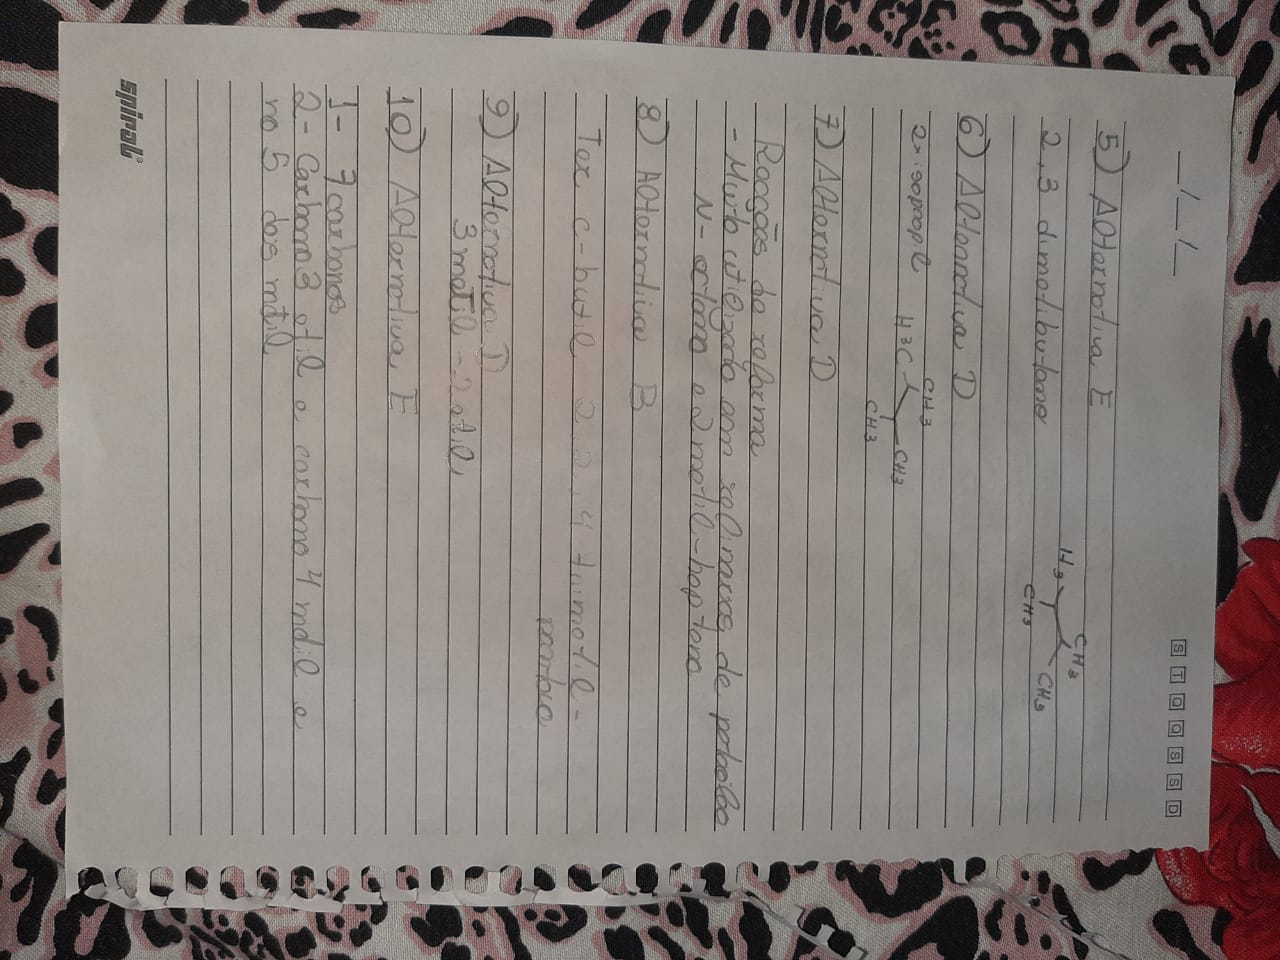 __/__/__
S T Q Q S S D
5) Alternativa E
2,3 dimetilbutano
H3 CH3 CH3 CH3
6) Alternativa D
2-isopropil
H3C CH3 CH3 CH3
7) Alternativa D
Reações de reforma
- Muito utilizado em refinarias de petroléo
N- octano a 2 metil-heptano
8) Alternativa B
Ter c-butil 2,2,4 trimetil-
9) Alternativa D
3 metil - 2 etil
10) Alternativa E
1- 7 carbonos
2- Carbono 3 etil e carbono 4 metil e
no 5 dos metil
spiral